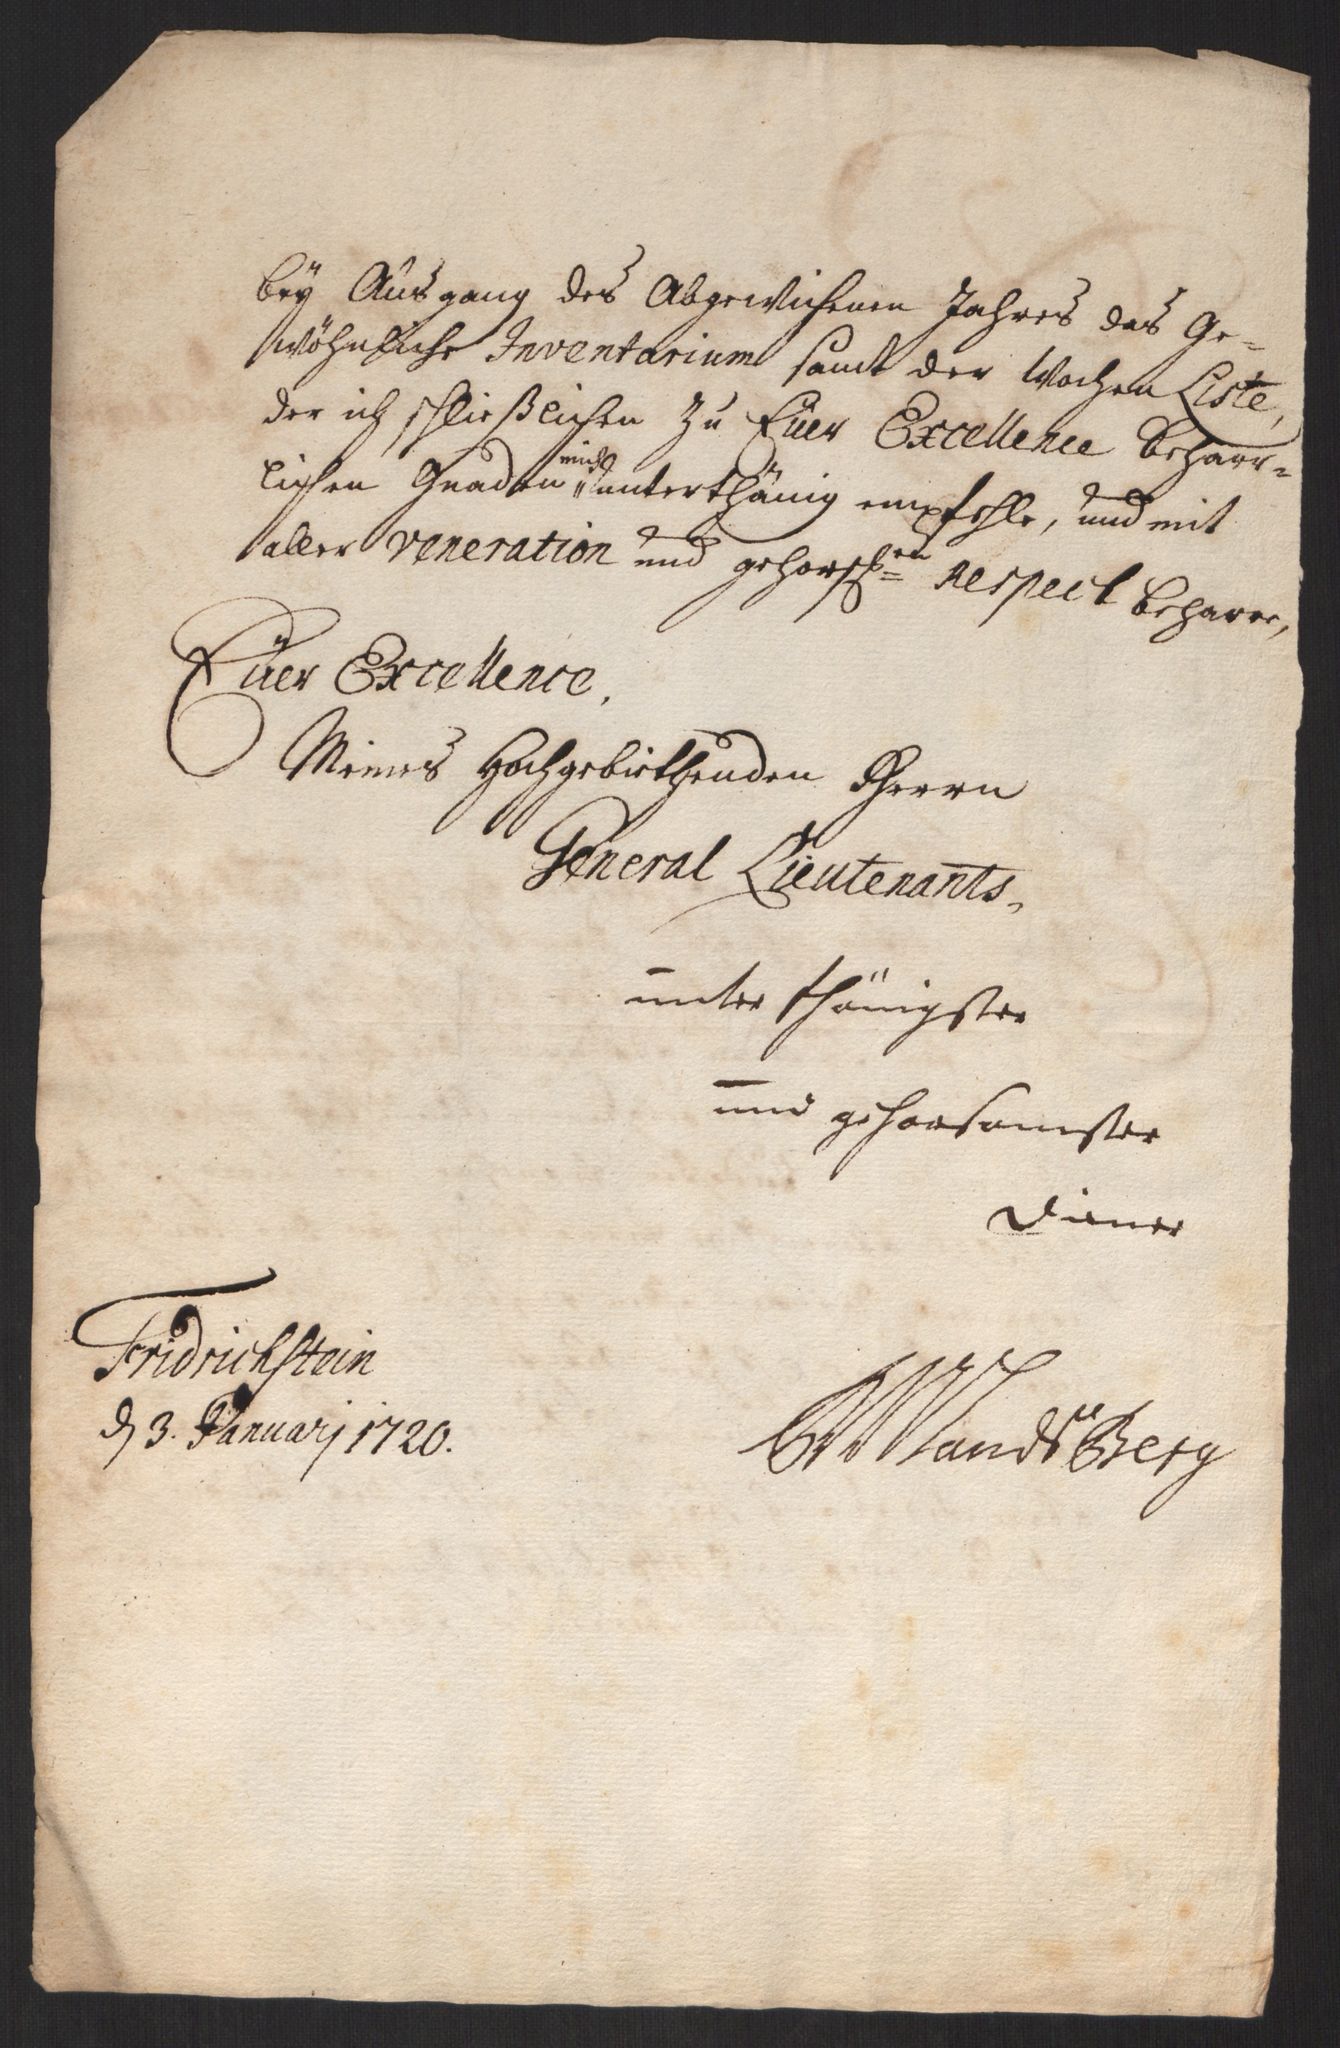 beÿ Ausgang des Abgewichenen Jahres das Ge-
wöhnliche Inventarium samt der Wochen Liste,
der ich schließlichen zu Eüer Excellence beharr=
lichen Gnaden mich unterthänig empfehle, und mit
aller veneration und gehors:en respect beharre,
Eüer Excellence,
Meines Hochgebiethenden Herrn
General Lieutenants,
unterthänigster
und gehorsamster
Diener
Fridrichstein
d 3. Januarj 1720.
LandsBerg